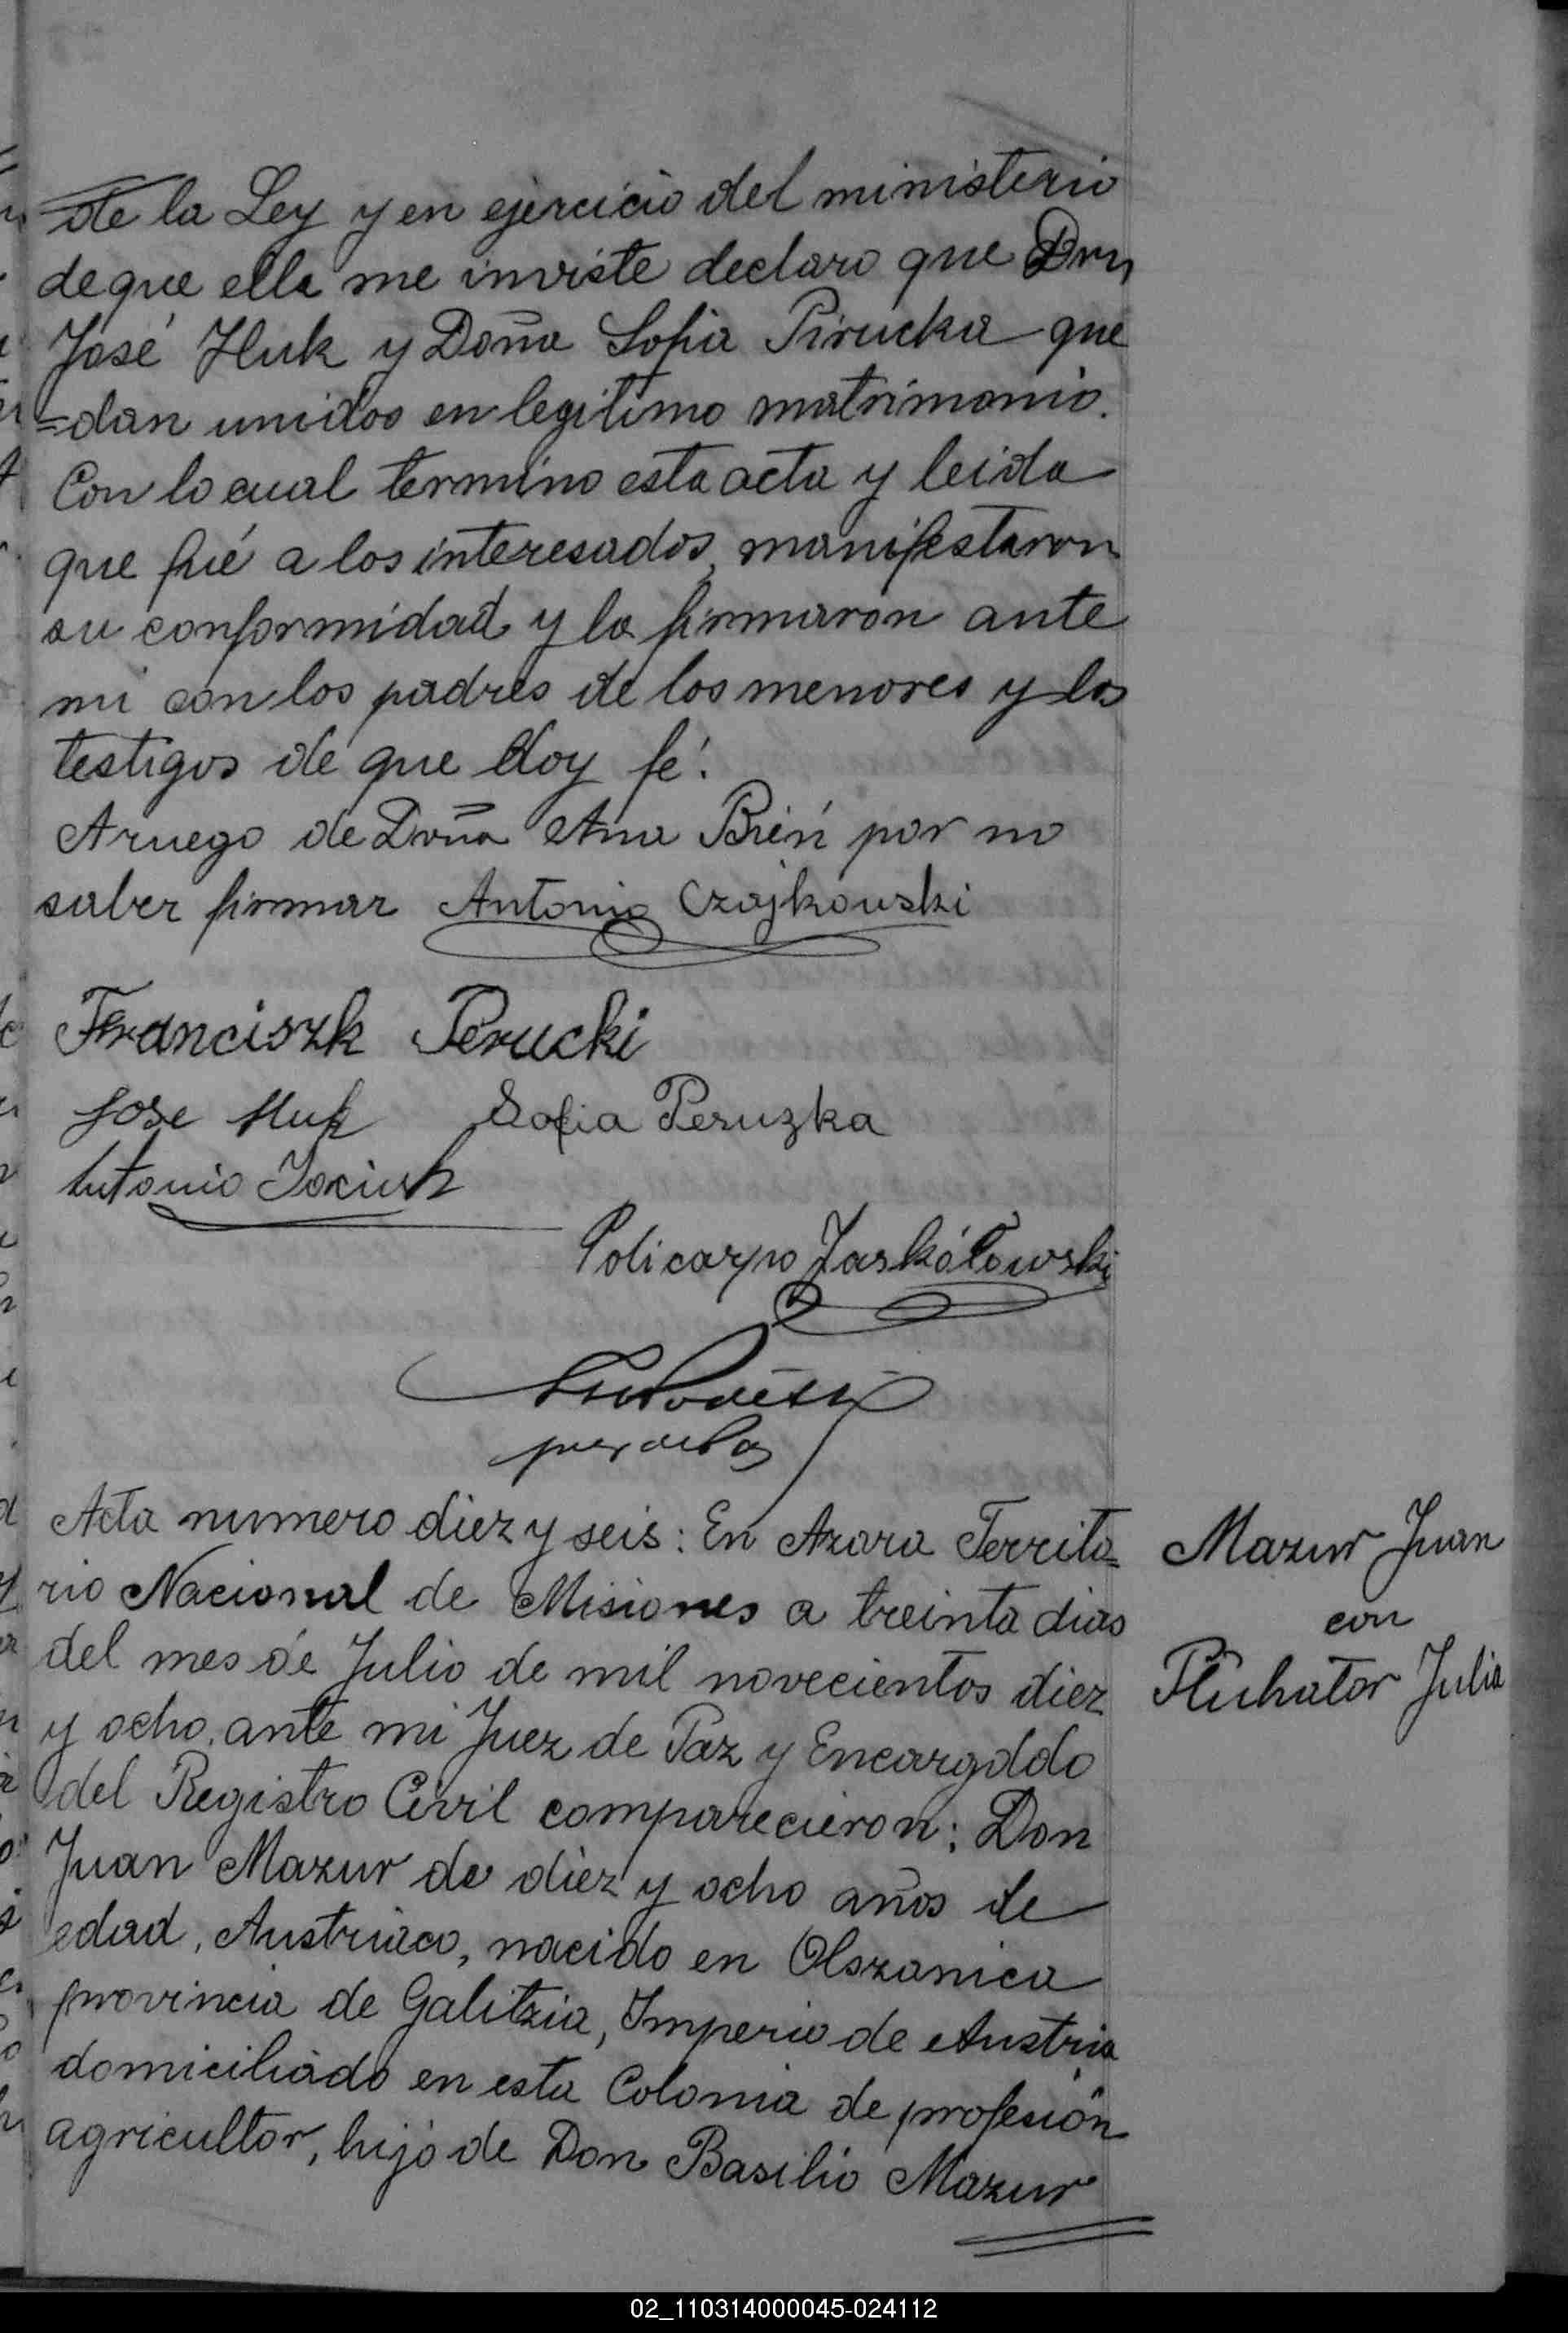 de la Ley y en ejercicio del ministerio
de que ella me inviste declaro que Don
José Huk y Doña Sofia Pirucka que
=dan unidos en legitimo matrimonio.
Con lo cual termino esta acta y leida
que fué a los interesados, manifestaron
su conformidad y la firmaron ante
mi con los padres de los menores y los
testigos de que doy fé.
A ruego de Doña Ana Bień por no
saber firmar Antonio Czajkowski
Franciszk Perucki
Jose Huk Sofia Peruzka
Antonio
Policarpo Jaskółowski
Acta numero diez y seis: En Azara Territo=
rio Nacional de Misiones a treinta dias
del mes de Julio de mil novecientos diez
y ocho, ante mi Juez de Paz y Encargado
del Registro Civil comparecieron: Don
Juan Mazur de diez y ocho años de
edad, Austriaco, nacido en Olszanica
provincia de Galitzia, Imperio de Austria
domiciliado en esta Colonia de profesión
agricultor, hijo de Don Basilio Mazur
Mazur Juan
con
Julia
02_110314000045-024112